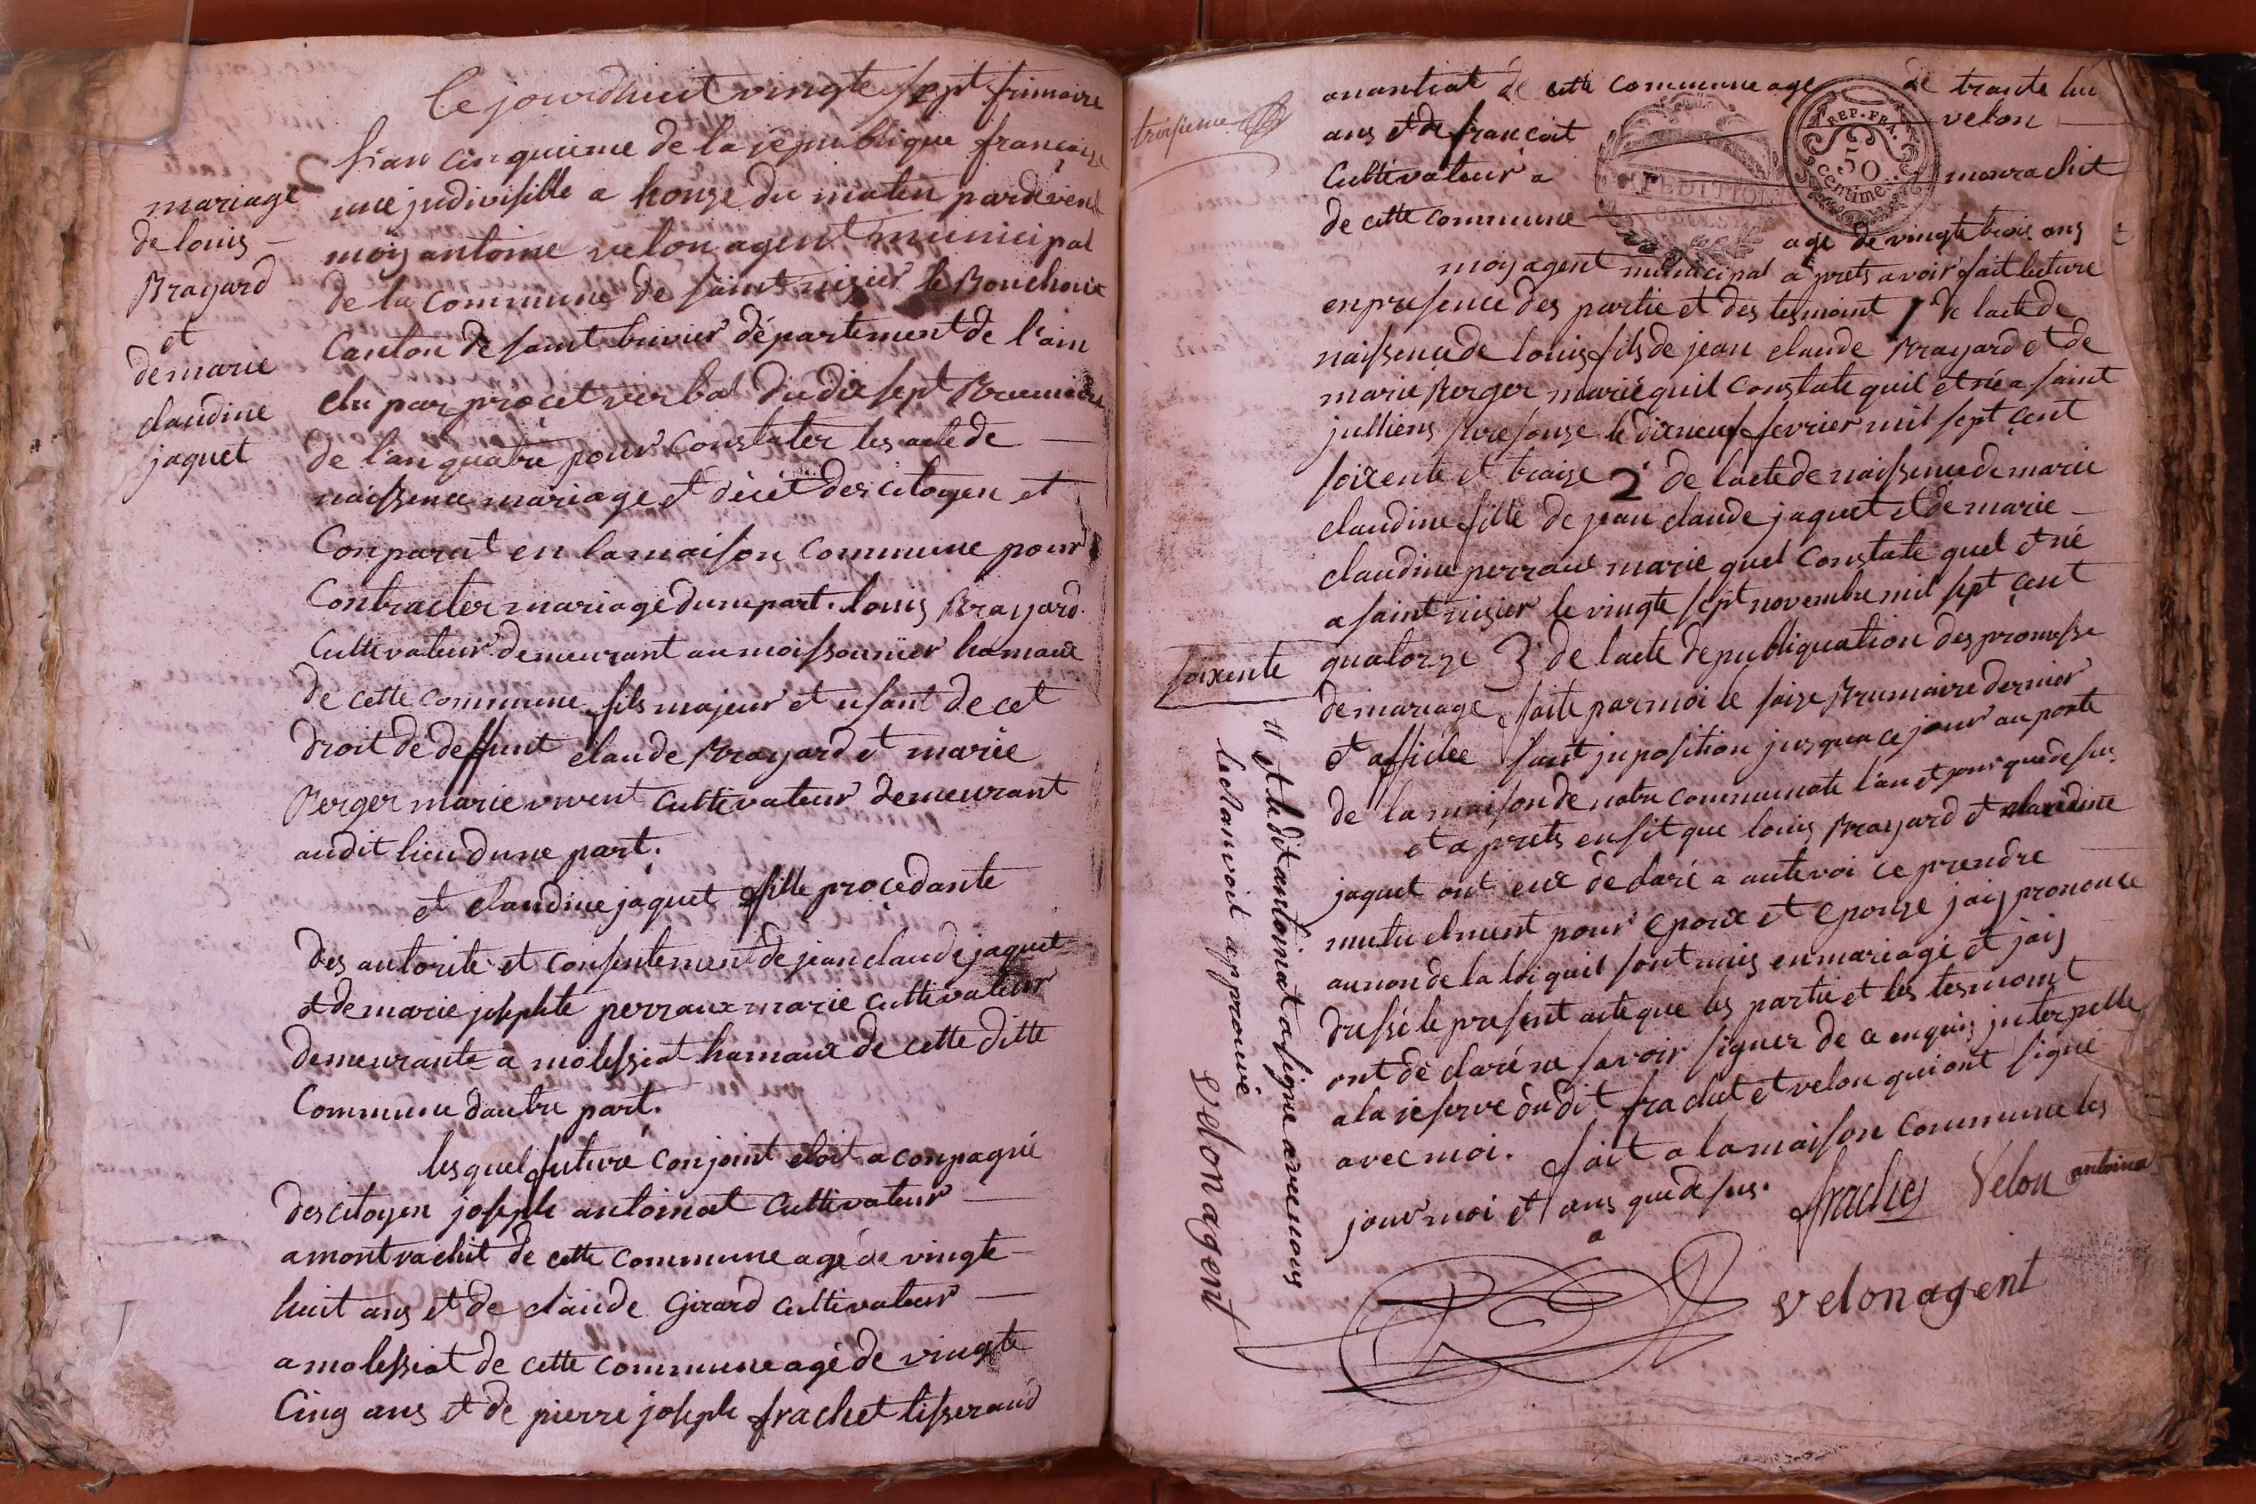 mariage
de louis
Brayard
et
demarie
claudine
jaquet
Ce jourdhuit vingte sept frimaire
l'ian cinquieme de la republique française
une jndivisible a honze du maten pardevent
moy antoine velon agent municipal
de la commune de saint nisier le Bouchoux
Canton de saint trivier département de l'ain
elu par procet verbal du dix sept Brumaire
de l'an quatre pour constater les acte de
naissence mariage et décét des citoyen et
Conparut en la maison commune pour
Contracter mariage dune part. louis Brayard
Cultivateur demeurant au moissonnier hamaux
de cette commune fils majeur et usant de cet
droit de deffunt claude Brayard et marie
Berger marie vivent cultivateur demeurant
audit lieu dune part.
et claudine jaquet fille proçedante
des autorite et consentement de jean claude jaquet
et de marie josephte perraux marie cultivateur
demeurante a molessiat hamaux de cette ditte
Commune dautre part.
lesquel futuré conjoint etoit aconpagné
des citoyen joseph antoinat cultivateur
a montrachit de cette commune agé de vingte
huit ans et de claude Girard cultivateur
a molessiat de cette commune agé de vingte
Cinq ans et de pierre joseph frachet tisserand
troisieme
amantiat de cette commune age de trante hui
ans et de françoit velon
Cultivateur a monrachit
de cette commune age de vingte trois ans
REP. FRA.
50
centimes
moy agent municipal a prets avoir fait lecture
en presence des partie et des tesmoint 1 de lacte de
naissence de louis fils de jean claude Brayard et de
marie Berger marié quil constate quil et né a saint
julliens sur resouze le dix neuf fevrier mil sept çent
soixente et traise 2 de lacte de naissence de marie
claudine fille de jean claude jaquet et de marie
claudine perraux marie quel constate quel et né
a saint nisier le vingte sept novembre mil sept çent
soixente
quatorze 3 de lacte de publiquation des promesse
de mariage faite par moi le saize Brumaire dernier
et affichee sant juposition jusqua ce jour au porte
de la maison de notre communate l'an et jour que desus
et a prets ensit que louis Brayard et claudine
jaquet ont eux declaré a autevoi ce prendre
mutuelment pour epoux et epouze jaiy prononce
au nom de la loi quil sont unis en mariage et jaiy
dressé le present acte que les partie et les tesmoint
ont declaré ne savoir signer de ce enquis jnterpellé
a la reserve dudit frachet et velon qui ont signé
avec moi. fait a la maison commune les
jour moi et ans que desus.
frachet Velon antoina
velon agent
et le dit antoinat a signe avec nous
velon agent